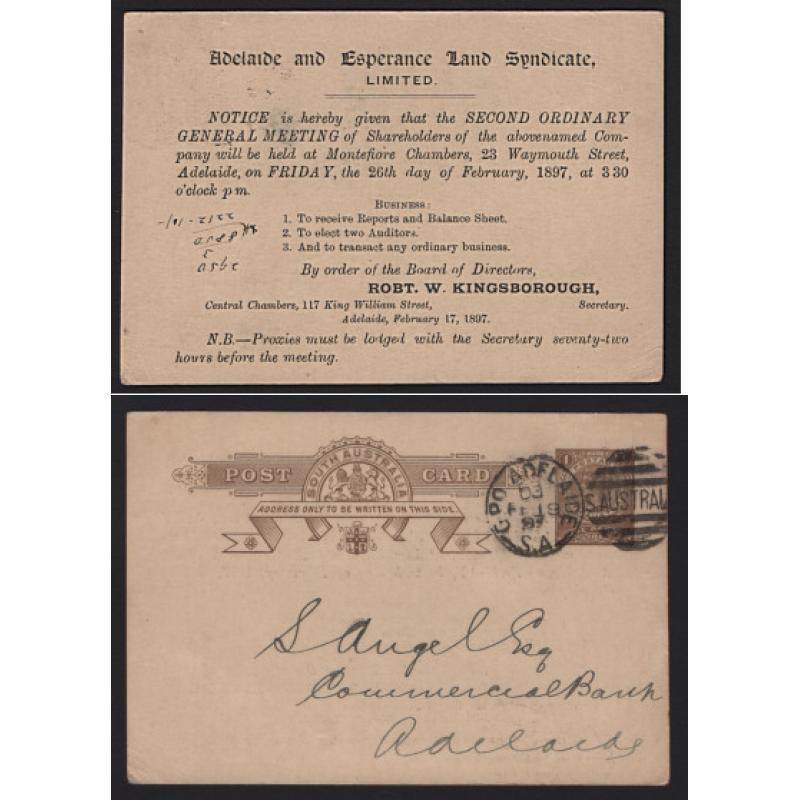 Adelaide and Esperance Land Syndicate,
LIMITED.
NOTICE is hereby given that the SECOND ORDINARY
GENERAL MEETING of Shareholders of the abovenamed Com-
pany will be held at Montefiore Chambers, 23 Waymouth Street,
Adelaide, on FRIDAY, the 26th day of February, 1897, at 3 30
o'clock p m.
BUSINESS:
1. To receive Reports and Balance Sheet.
2. To elect two Auditors.
3. And to transact any ordinary business.
By order of the Board of Directors,
ROBT. W. KINGSBOROUGH,
Central Chambers, 117 King William Street, Secretary.
Adelaide, February 17, 1897.
N.B.—Proxies must be lodged with the Secretary seventy-two
hours before the meeting.
POST CARD
SOUTH AUSTRALIA
ADDRESS ONLY TO BE WRITTEN ON THIS SIDE.
G.P.O. ADELAIDE
FE 18
97
S.A.
S.AUSTRAL
S Angel Esq
Commercial Bank
Adelaide